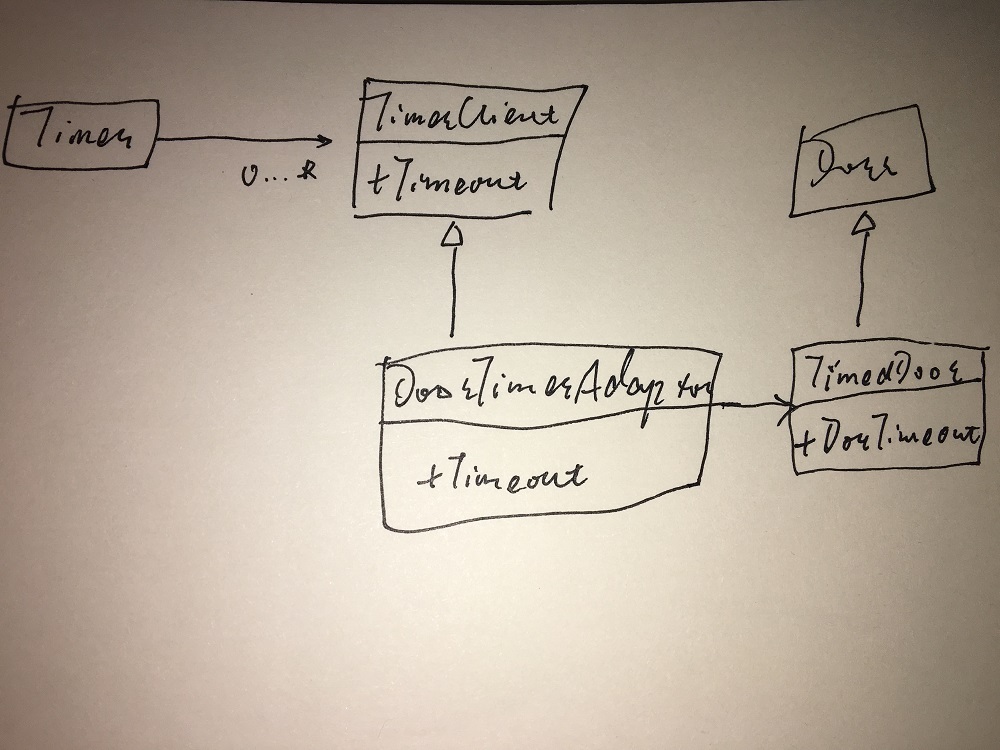 Timer
0...*
TimerClient
+Timeout
Door
DoorTimerAdaptor
+Timeout
TimedDoor
+DoorTimeout